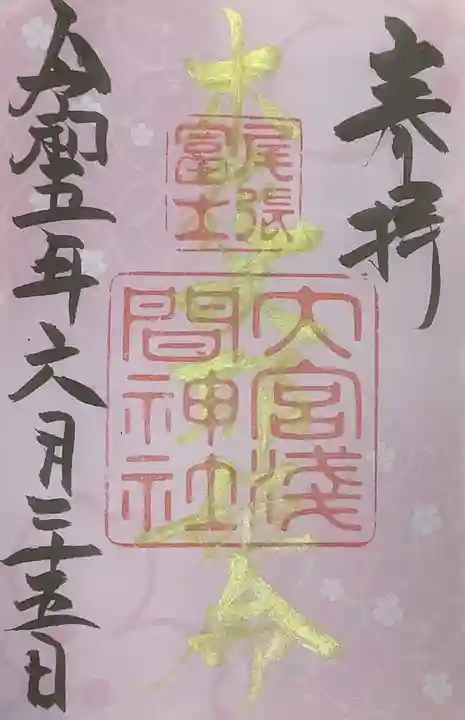 奉拝
木
命
尾張
富士
大宮淺
間神社
令和五年六月二十五日